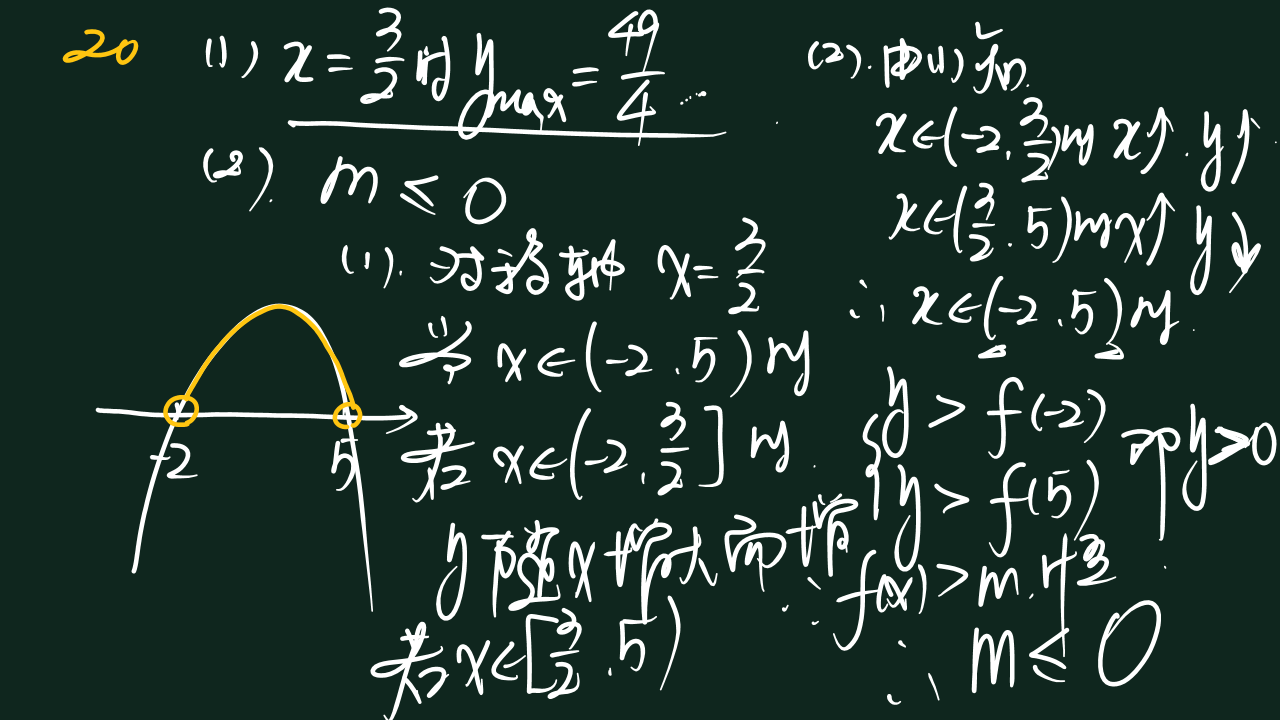 20
(1) x = 3/2 时 y max = 49/4 ...
(2). m ≤ 0
(1). 对称轴 x = 3/2
当 x ∈ (-2 . 5) 时
若 x ∈ (-2, 3/2] 时
y 随 x 增大而增
若 x ∈ [3/2 . 5)
-2
5
(2). 由(1)可知
x ∈ (-2, 3/2) 时 x↑. y↑
x ∈ (3/2 . 5) 时 x↑ y↓
∴ x ∈ (-2 . 5) 时
{ y > f(-2)
y > f(5)
即 y > 0
∵ f(x) > m
∴ m ≤ 0